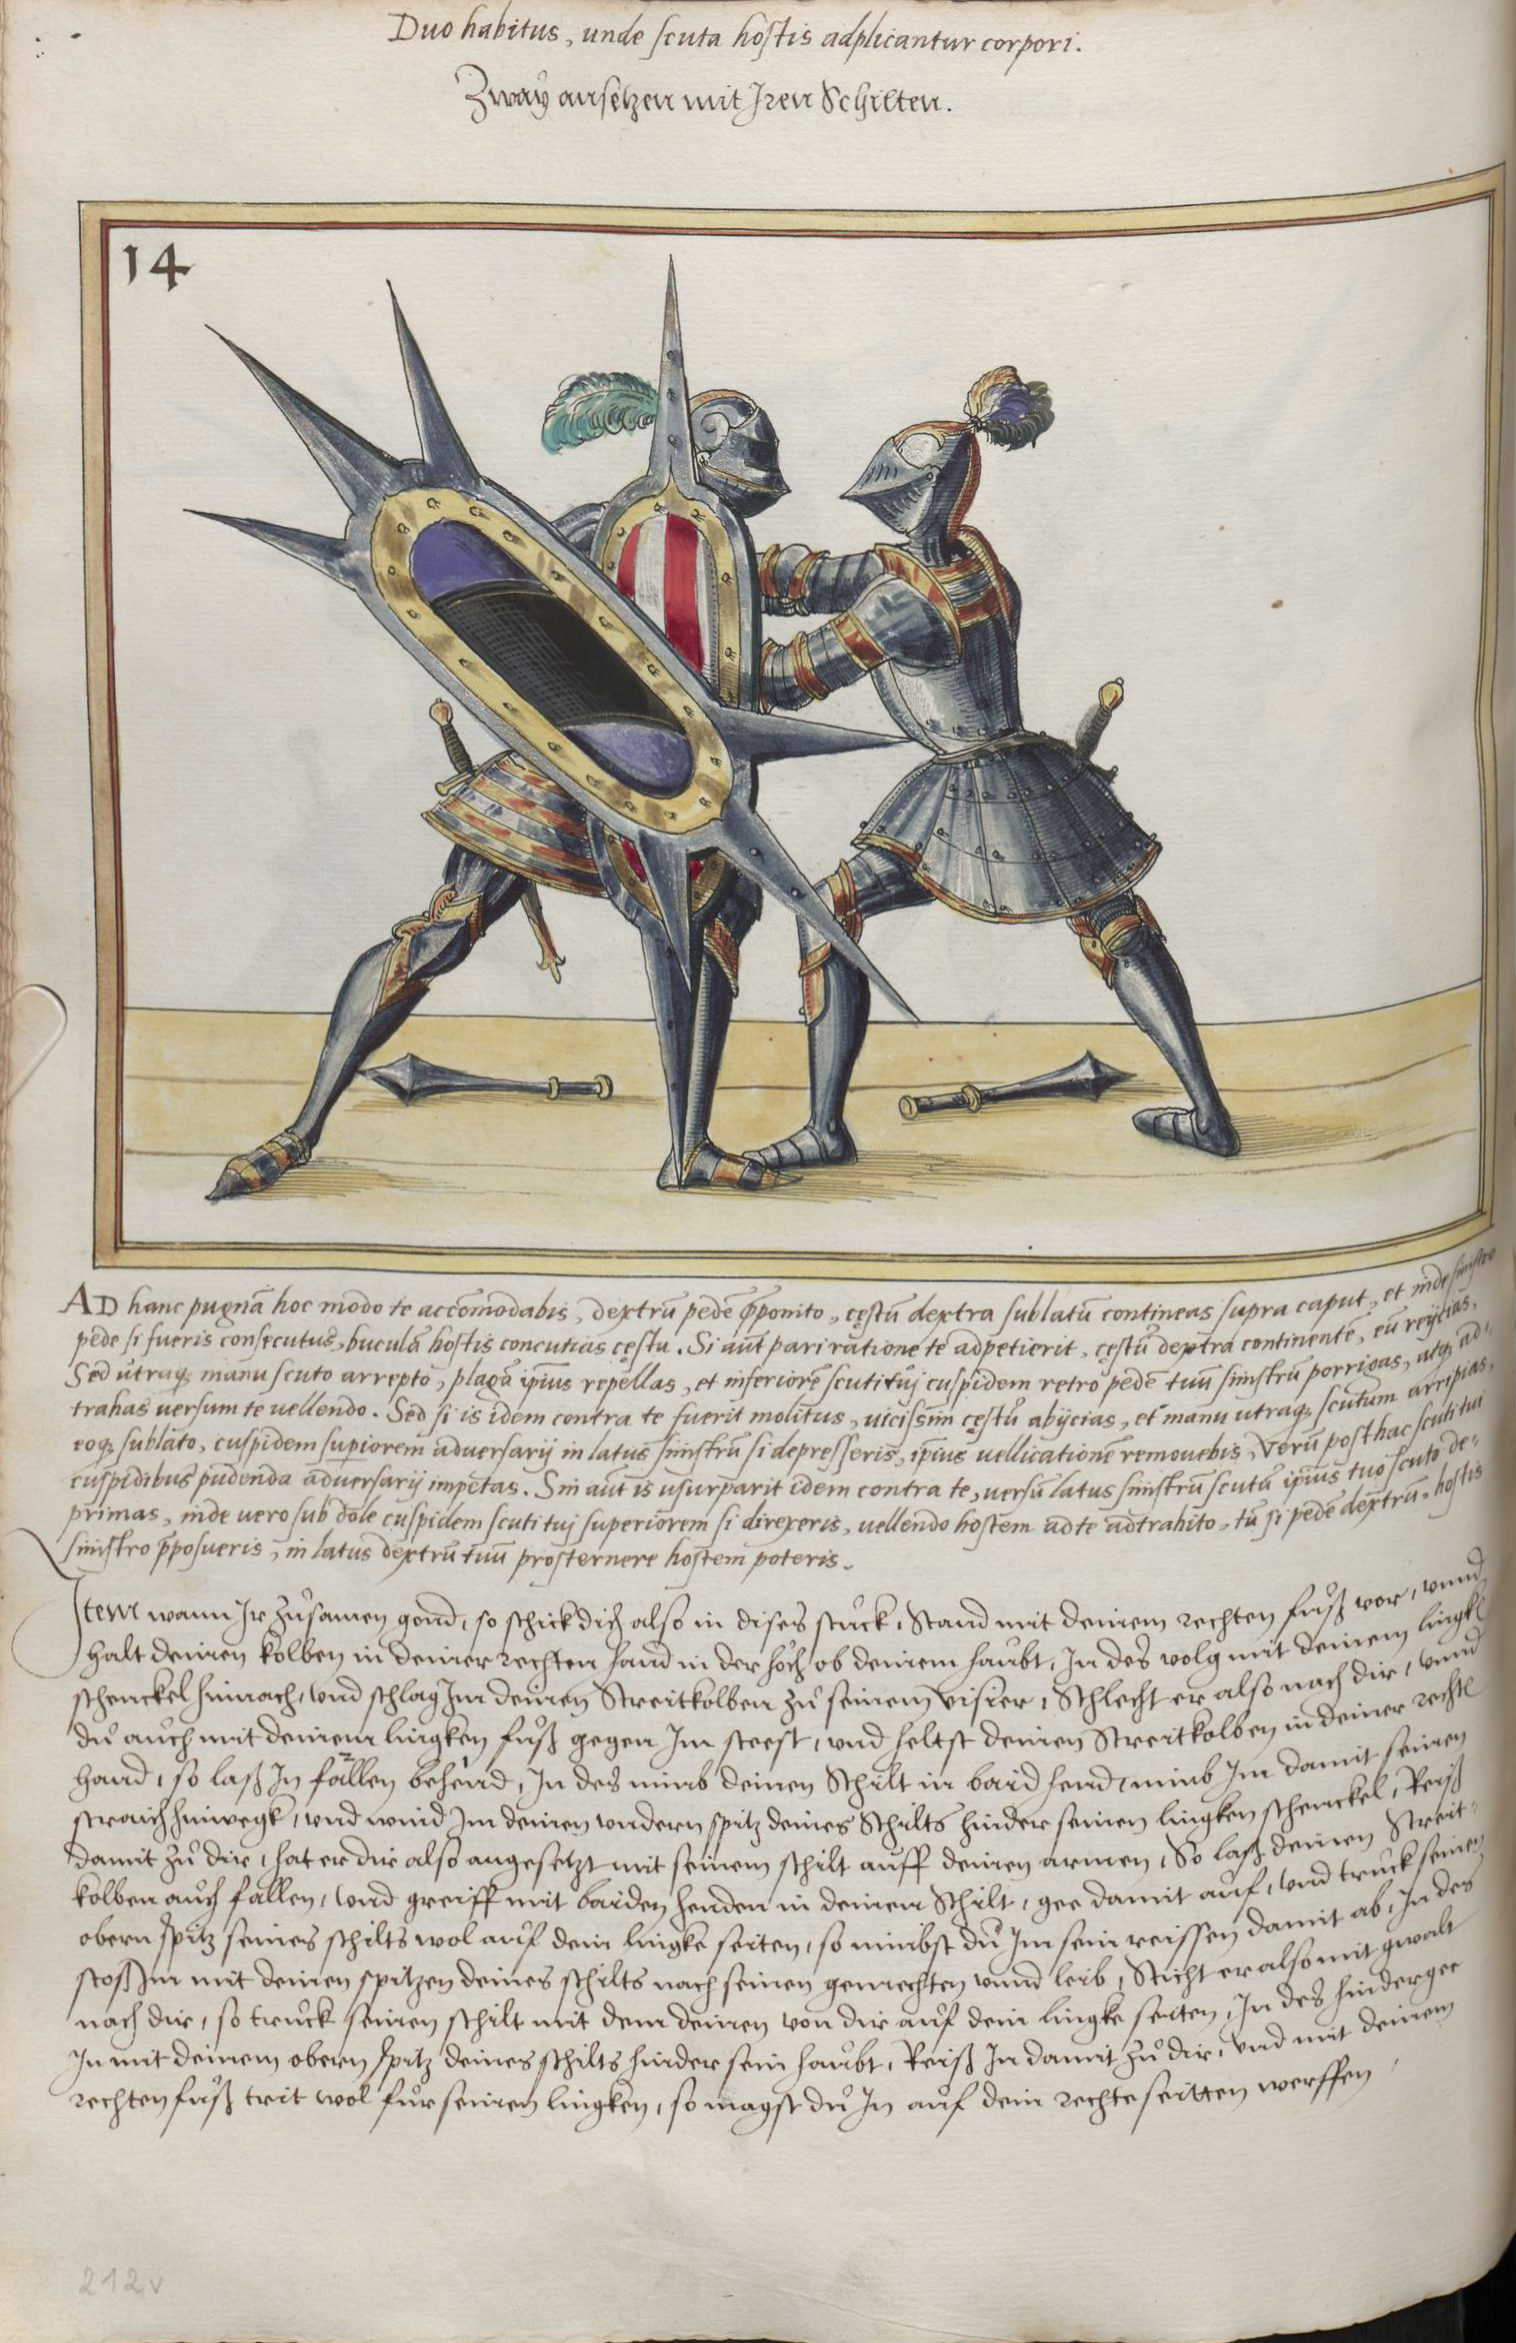 Duo habitus, unde scuta hostis adplicantur corpori.
Zway ansetzen mit Iren Schilten.
14
AD hanc pugnā hoc modo te accōmodabis, dextrū pedē p̄ponito, cęstū dextra sublatū contineas supra caput, et inde sinistro
pede si fueris consecutus, buculā hostis concutias cęstu. Si aūt pari ratione te adpetierit, cęstū dextra continentē, eū reijcias,
Sed utraq; manu scuto arrepto, plagā ip̄ius repellas, et inferiorē scuti tuj cuspidem retro pedē tuū sinistrū porrigas, atq; ad-
trahas uersum te uellendo. Sed si is idem contra te fuerit molitus, uicissim cęstū abijcias, et manu utraq; scutum arripias,
eoq; sublato, cuspidem supiorem aduersarij in latus sinistrū si depresseris, ip̄ius uellicationē remouebis, Verū posthac scuti tui
cuspidibus pudenda aduersarij impetas. Sin aūt is usurparit idem contra te, uersū latus sinistrū scutū ip̄ius tuo scuto de-
primas, inde uero sub dole cuspidem scuti tuj superiorem si direxeris, uellendo hostem ad te adtrahito, tū si pedē dextrū, hostis
sinistro p̄posueris, in latus dextrū tuū prosternere hostem poteris.
Item wann Ir zůsamen gond, so schick dich also in dises stuck, Stand mit deinem rechten fůß vor, unnd
halt deinen kolben in deiner rechten hand in der höch ob deinem haubt, In des volg mit deinem lingkē
schenckel hinnach, und schlag Im deinen Streitkolben zů seinem visier, Schlecht er also nach dir, unnd
du auch mit deinem lingken fůß gegen Im steest, und heltst deinen Streitkolben in deiner rechtē
hand, so laß In fallen behend, In des nimb deinen Schilt in baid hend, nimb Im damit seinen
straich hinwegk, und wind Im deinen undern spitz deines Schilts hinder seinen lingken schenckel, Reiß
damit zů dir, hat er dir also angesetzt mit seinem schilt auff deinen armen, So laß deinen Streit-
kolben auch fallen, und greiff mit baiden henden in deinen Schilt, gee damit auf, und truck seinen
obern spitz seines schilts wol auf dein lingke seiten, so nimbst du Im sein reissen damit ab, In des
stoß Im mit deinen spitzen deines schilts nach seinen gemechten unnd leib, Sticht er also mit gwalt
nach dir, so truck seinen schilt mit dem deinen von dir auf dein lingke seiten, In des hindergee
In mit deinem obern spitz deines schilts hinder sein haubt, Reiß In damit zů dir, und mit deinem
rechten fůß trit wol für seinen lingken, so magst du In auf dein rechte seitten werffen
212v